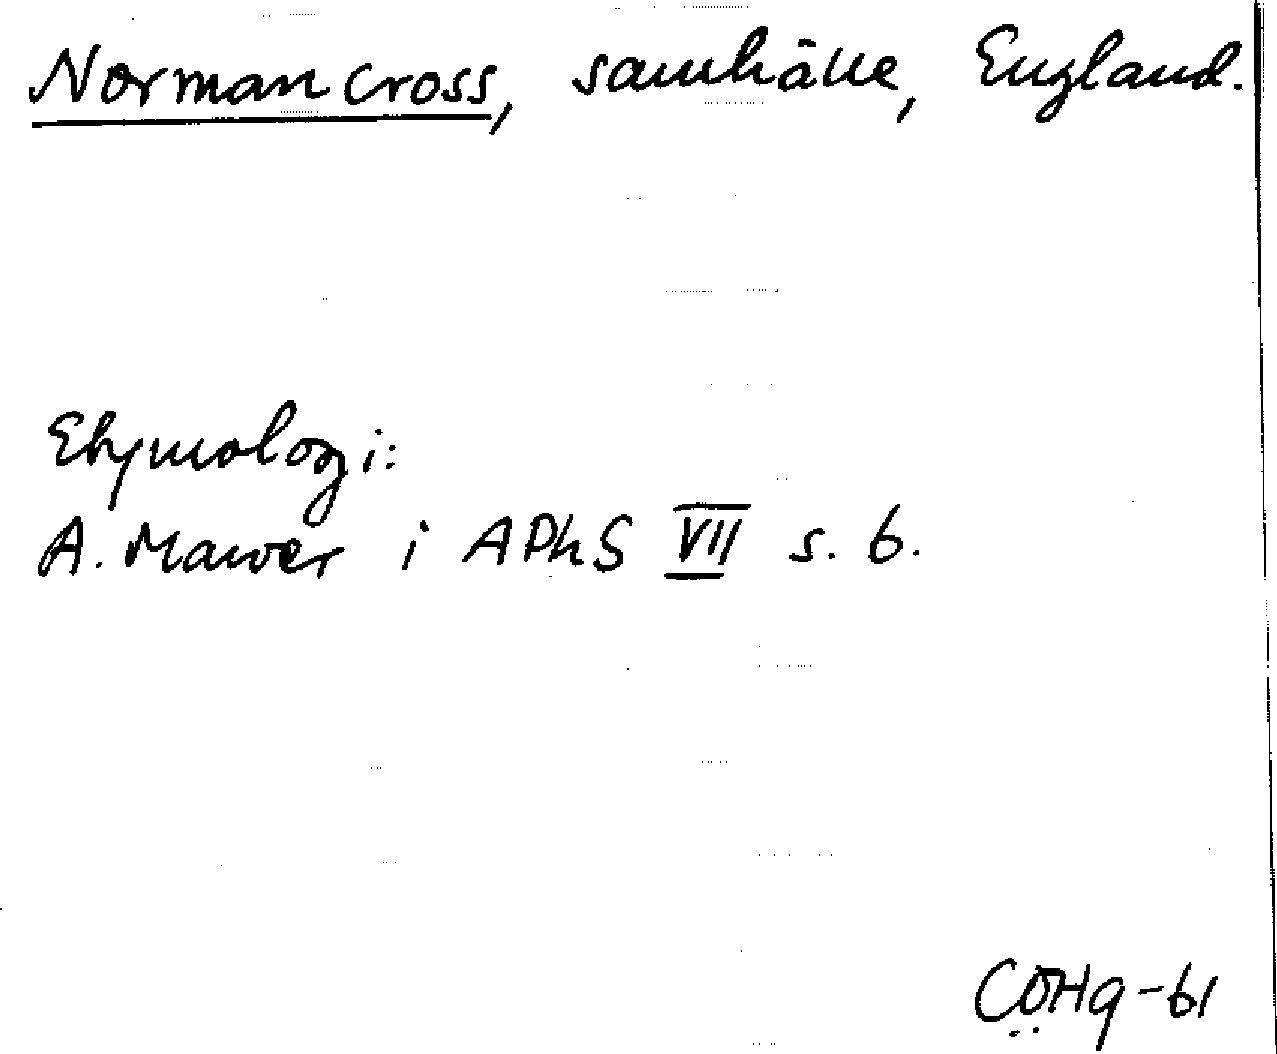 Norman Cross, samhälle, England.
Etymologi:
A. Mawer i APhS VII s. 6.
COHg-61